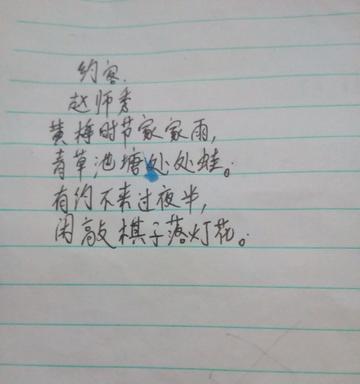 约客.
赵师秀
黄梅时节家家雨,
青草池塘处处蛙。
有约不来过夜半,
闲敲棋子落灯花。